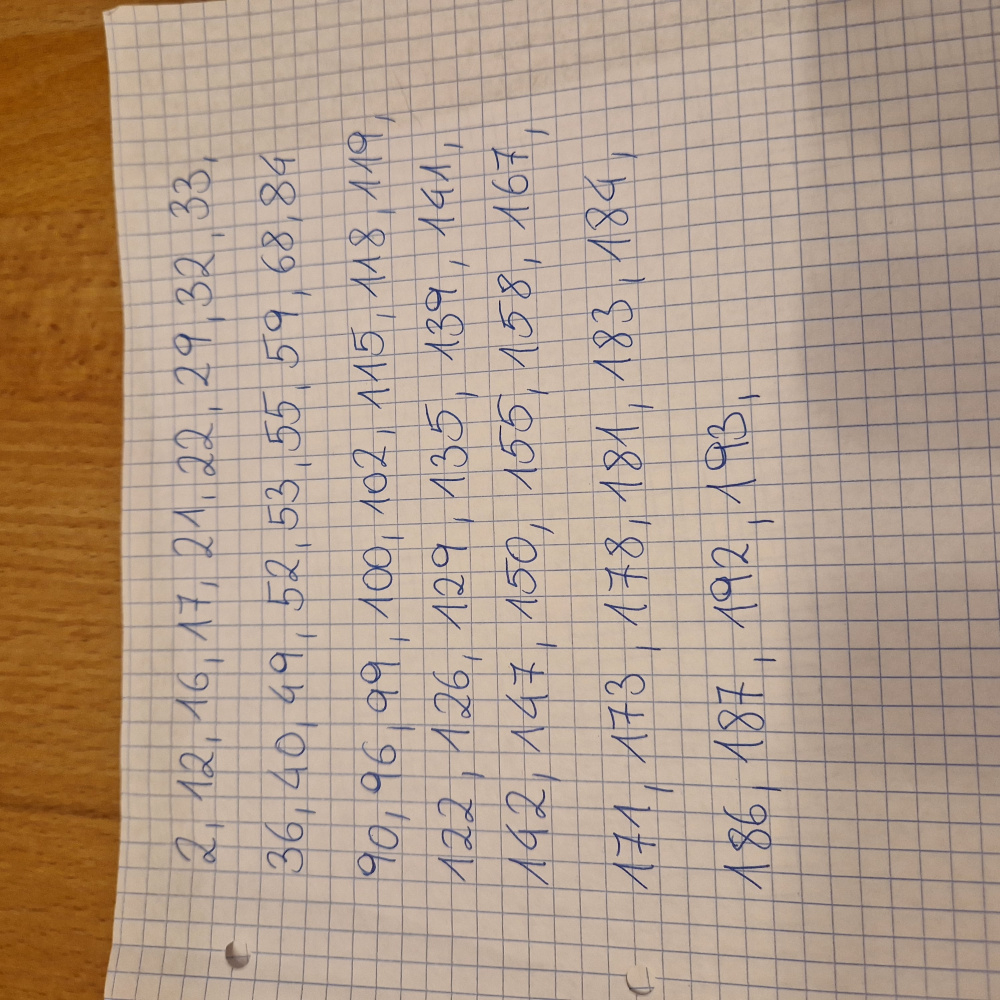 2, 12, 16, 17, 21, 22, 29, 32, 33,
36, 40, 49, 52, 53, 55, 59, 68, 84
90, 96, 99, 100, 102, 115, 118, 119,
122, 126, 129, 135, 139, 141,
142, 147, 150, 155, 158, 167,
171, 173, 178, 181, 183, 184,
186, 187, 192, 193,